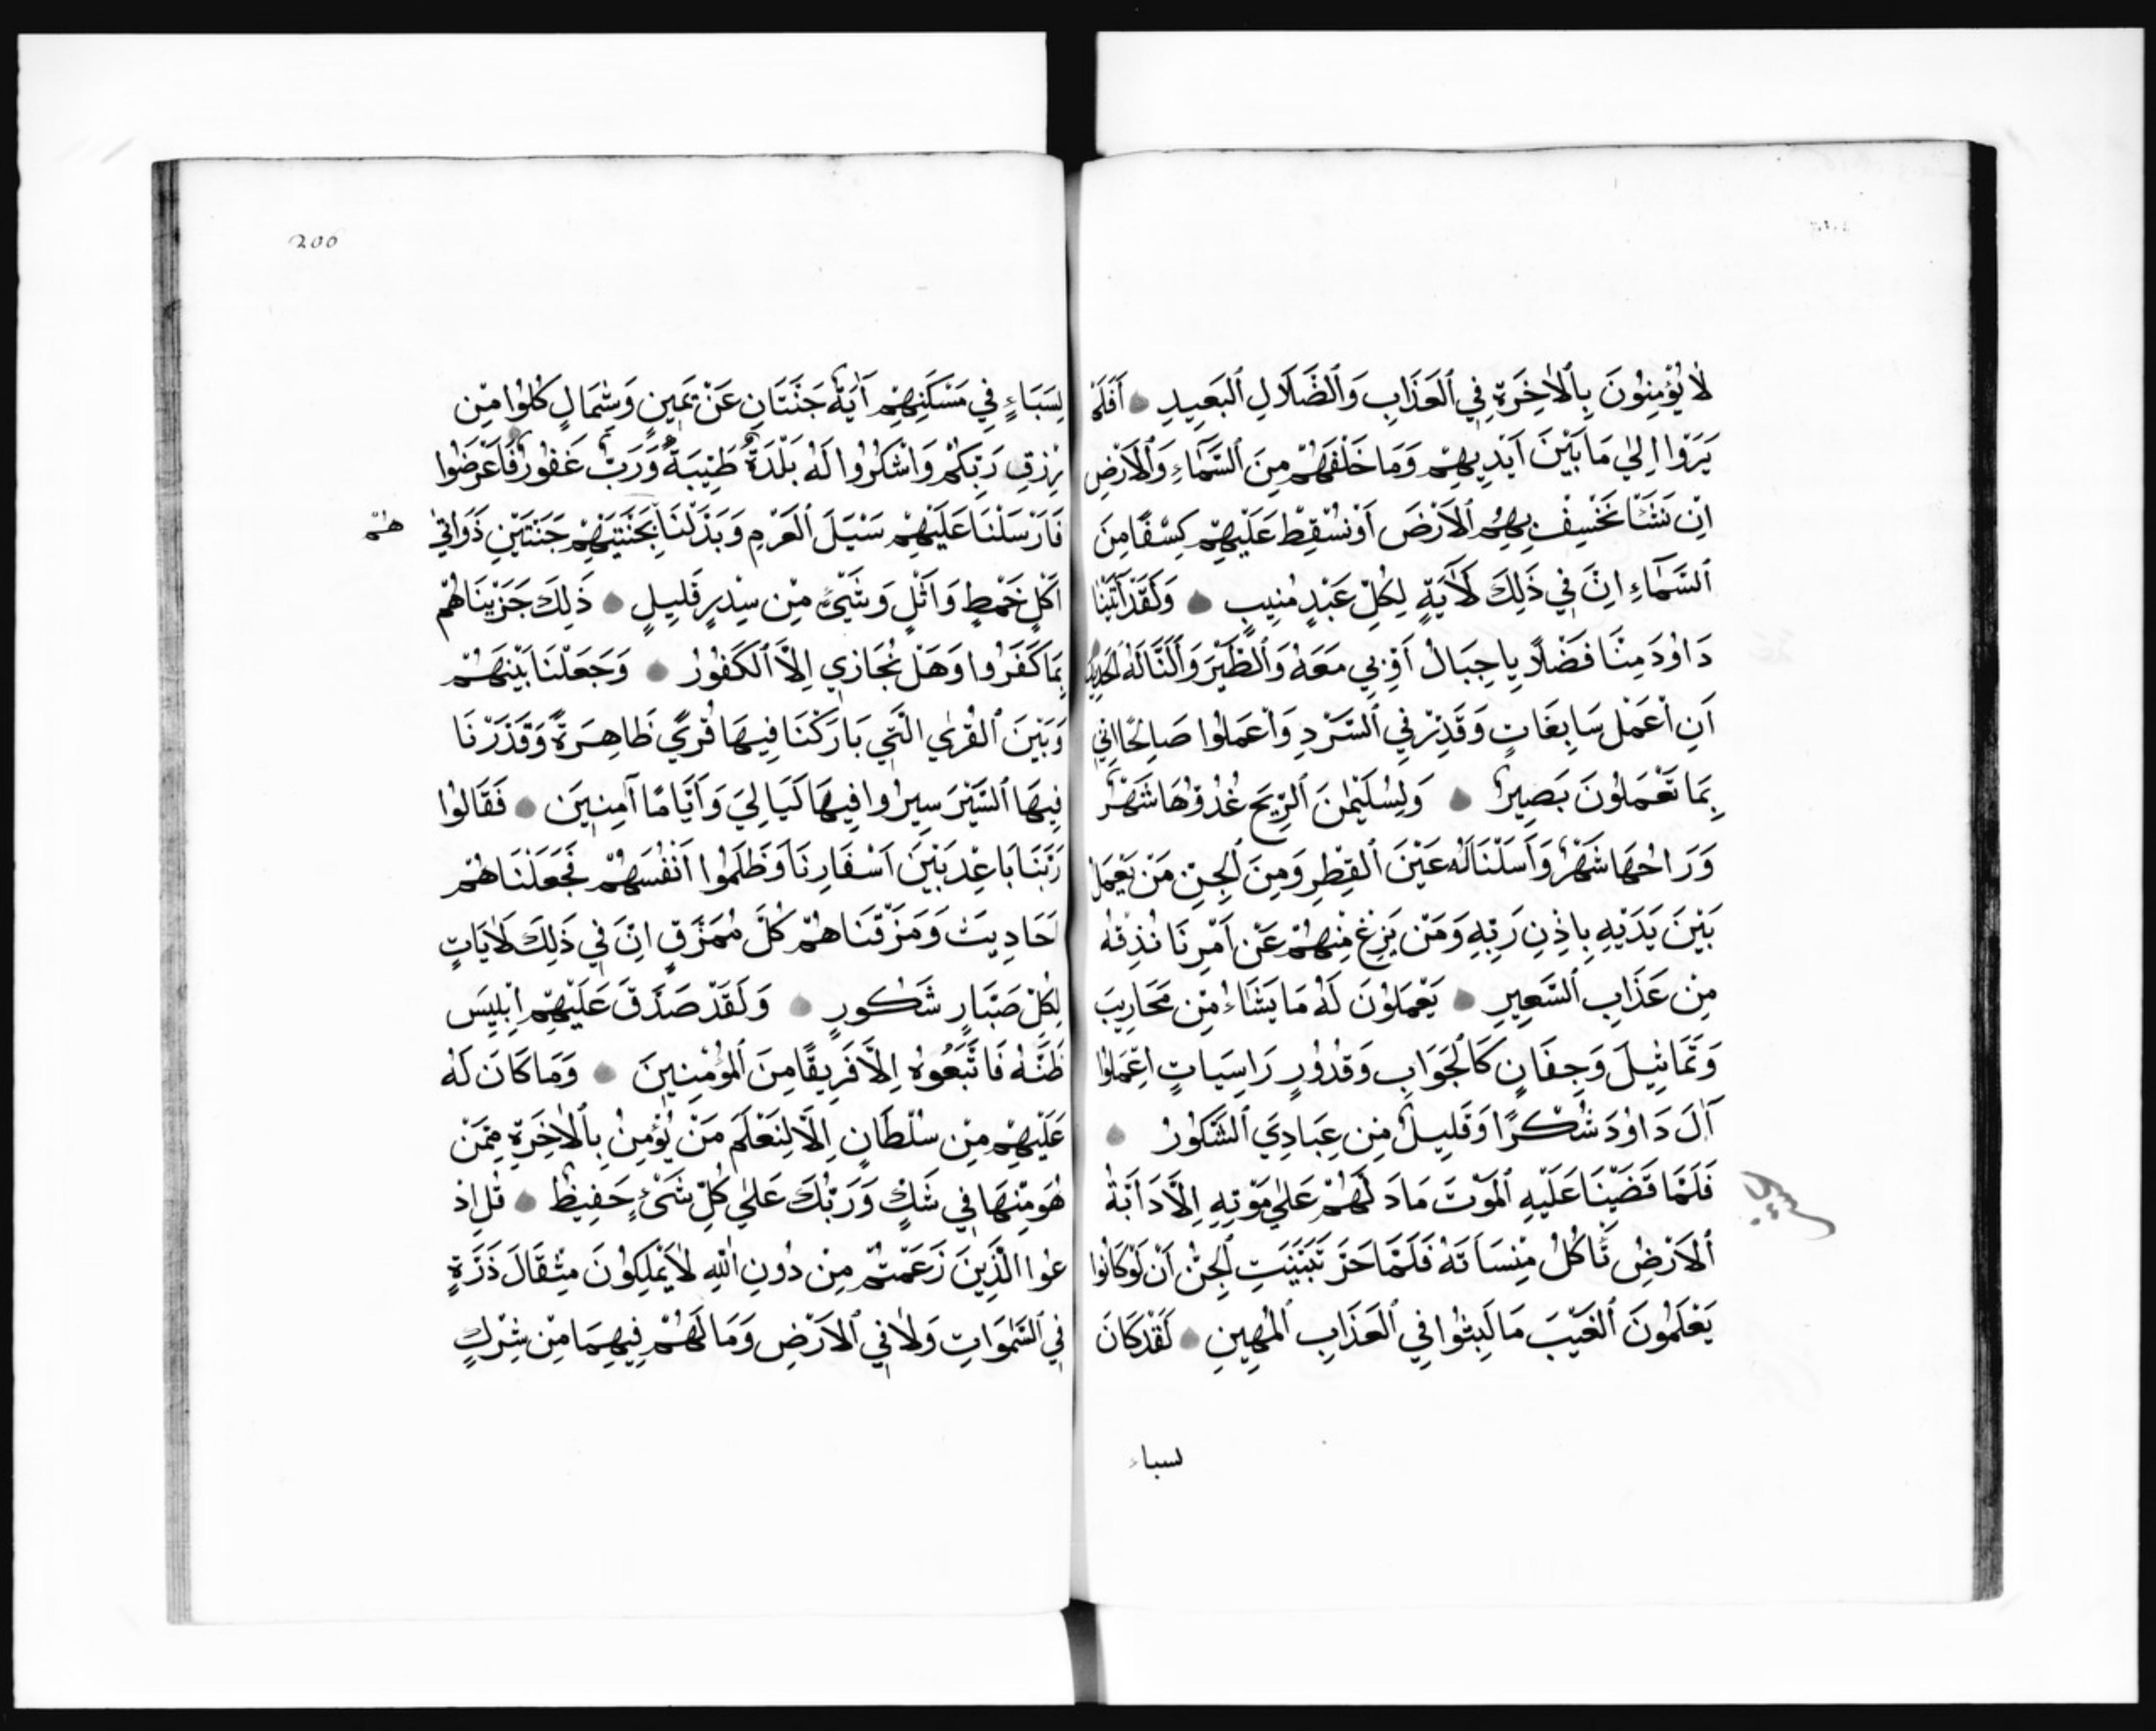 لَا يُؤْمِنُونَ بِٱلْاٰخِرَةِ فِي ٱلْعَذَابِ وَٱلضَّلَالِ ٱلْبَعِيدِ اَفَلَمْ
يَرَوْا اِلٰي مَا بَيْنَ اَيْدِيهِمْ وَمَا خَلْفَهُمْ مِنَ ٱلسَّمَٓاءِ وَٱلْاَرْضِ
اِنْ نَشَأْ نَخْسِفْ بِهِمُ ٱلْاَرْضَ اَوْ نُسْقِطْ عَلَيْهِمْ كِسْفًا مِنَ
ٱلسَّمَٓاءِ اِنَّ فِي ذَلِكَ لَاٰيَةً لِكُلِّ عَبْدٍ مُنِيبٍ وَلَقَدْ اٰتَيْنَا
دَاوُدَ مِنَّا فَضْلًا يَا جِبَالُ اَوِّبِي مَعَهُ وَٱلطَّيْرَ وَاَلَنَّا لَهُ ٱلْحَدِيدَ
اَنِ اْعْمَلْ سَابِغَاتٍ وَقَدِّرْ فِي ٱلسَّرْدِ وَاْعْمَلُوا صَالِحًا اِنِّي
بِمَا تَعْمَلُونَ بَصِيرٌ وَلِسُلَيْمٰنَ ٱلرِّيحَ غُدُوُّهَا شَهْرٌ
وَرَوَاحُهَا شَهْرٌ وَاَسَلْنَا لَهُ عَيْنَ ٱلْقِطْرِ وَمِنَ ٱلْجِنِّ مَنْ يَعْمَلُ
بَيْنَ يَدَيْهِ بِاِذْنِ رَبِّهِ وَمَنْ يَزِغْ مِنْهُمْ عَنْ اَمْرِنَا نُذِقْهُ
مِنْ عَذَابِ ٱلسَّعِيرِ يَعْمَلُونَ لَهُ مَا يَشَٓاءُ مِنْ مَحَارِيبَ
وَتَمَاثِيلَ وَجِفَانٍ كَٱلْجَوَابِ وَقُدُورٍ رَاسِيَاتٍ اِعْمَلُوا
اٰلَ دَاوُدَ شُكْرًا وَقَلِيلٌ مِنْ عِبَادِيَ ٱلشَّكُورُ
فَلَمَّا قَضَيْنَا عَلَيْهِ ٱلْمَوْتَ مَا دَلَّهُمْ عَلٰي مَوْتِهِ اِلَّا دَابَّةُ
ٱلْاَرْضِ تَاْكُلُ مِنْسَاَتَهُ فَلَمَّا خَرَّ تَبَيَّنَتِ ٱلْجِنُّ اَنْ لَوْ كَانُوا
يَعْلَمُونَ ٱلْغَيْبَ مَا لَبِثُوا فِي ٱلْعَذَابِ ٱلْمُهِينِ لَقَدْ كَانَ
لسباء
200
لِسَبَاءٍ فِي مَسْكَنِهِمْ اٰيَةٌ جَنَّتَانِ عَنْ يَمِينٍ وَشِمَالٍ كُلُوا مِنْ
رِزْقِ رَبِّكُمْ وَاشْكُرُوا لَهُ بَلْدَةٌ طَيِّبَةٌ وَرَبٌّ غَفُورٌ فَاَعْرَضُوا
فَاَرْسَلْنَا عَلَيْهِمْ سَيْلَ ٱلْعَرِمِ وَبَدَّلْنَا بِجَنَّتَيْهِمْ جَنَّتَيْنِ ذَوَاتَيْ
هم
اُكُلٍ خَمْطٍ وَاَثْلٍ وَشَيْءٍ مِنْ سِدْرٍ قَلِيلٍ ذَلِكَ جَزَيْنَاهُمْ
بِمَا كَفَرُوا وَهَلْ نُجَازِي اِلَّا ٱلْكَفُورَ وَجَعَلْنَا بَيْنَهُمْ
وَبَيْنَ ٱلْقُرٰي الَّتِي بَارَكْنَا فِيهَا قُرًي ظَاهِرَةً وَقَدَّرْنَا
فِيهَا ٱلسَّيْرَ سِيرُوا فِيهَا لَيَالِيَ وَاَيَّامًا آمِنِينَ فَقَالُوا
رَبَّنَا بَاعِدْ بَيْنَ اَسْفَارِنَا وَظَلَمُوا اَنْفُسَهُمْ فَجَعَلْنَاهُمْ
اَحَادِيثَ وَمَزَّقْنَاهُمْ كُلَّ مُمَزَّقٍ اِنَّ فِي ذَلِكَ لَاٰيَاتٍ
لِكُلِّ صَبَّارٍ شَكُورٍ وَلَقَدْ صَدَّقَ عَلَيْهِمْ اِبْلِيسَ
ظَنَّهُ فَاتَّبَعُوهُ اِلَّا فَرِيقًا مِنَ ٱلْمُؤْمِنِينَ وَمَا كَانَ لَهُ
عَلَيْهِمْ مِنْ سُلْطَانٍ اِلَّا لِنَعْلَمَ مَنْ يُؤْمِنُ بِٱلْاٰخِرَةِ مِمَّنْ
هُوَ مِنْهَا فِي شَكٍّ وَرَبُّكَ عَلٰي كُلِّ شَيْءٍ حَفِيظٌ قُلِ ادْ
عُوا الَّذِينَ زَعَمْتُمْ مِنْ دُونِ اللّٰهِ لَا يَمْلِكُونَ مِثْقَالَ ذَرَّةٍ
فِي ٱلسَّمٰوَاتِ وَلَا فِي ٱلْاَرْضِ وَمَا لَهُمْ فِيهِمَا مِنْ شِرْكٍ